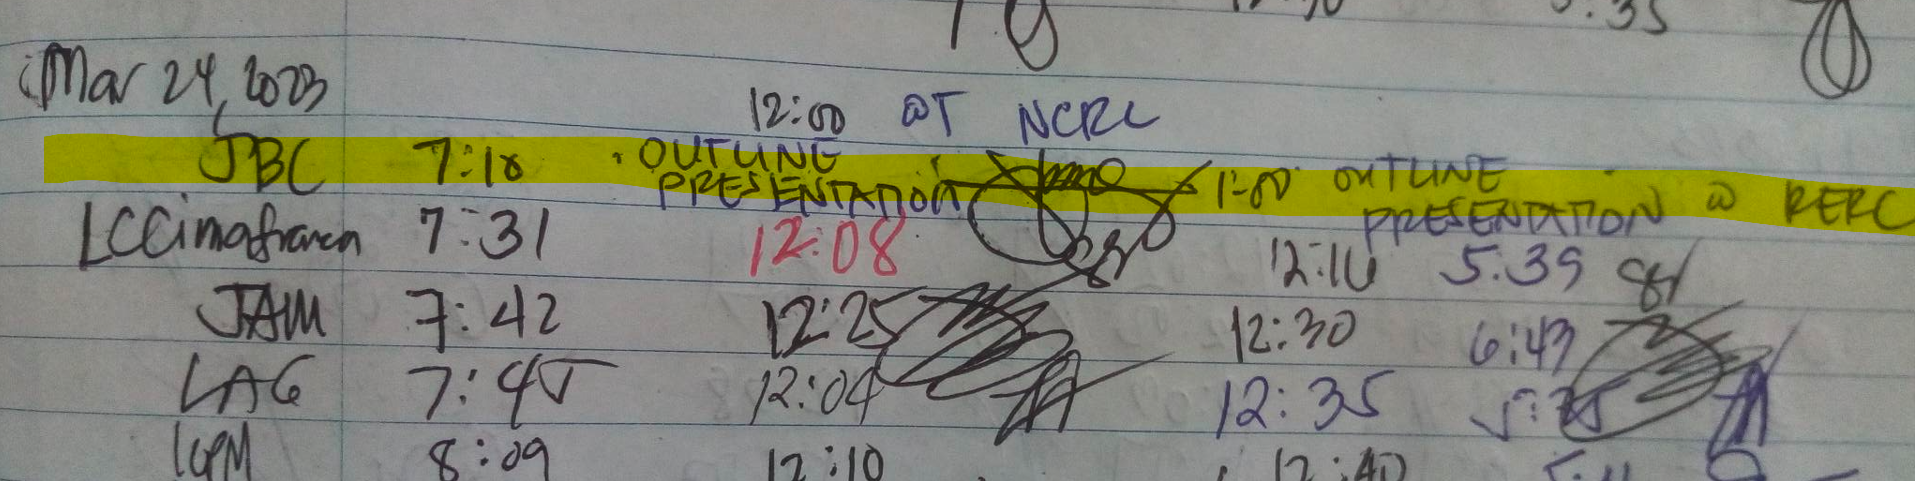 5:35
Mar 24, 2023
12:00 @T NCRL
JBC 7:18 OUTLINE PRESENTATION 1:00 OUTLINE PRESENTATION @ RERC
LCCimafranca 7:31 12:08 12:16 5:39
JAM 7:42 12:25 12:30 6:43
LAG 7:45 12:04 12:35
8:09 12:10 12:40